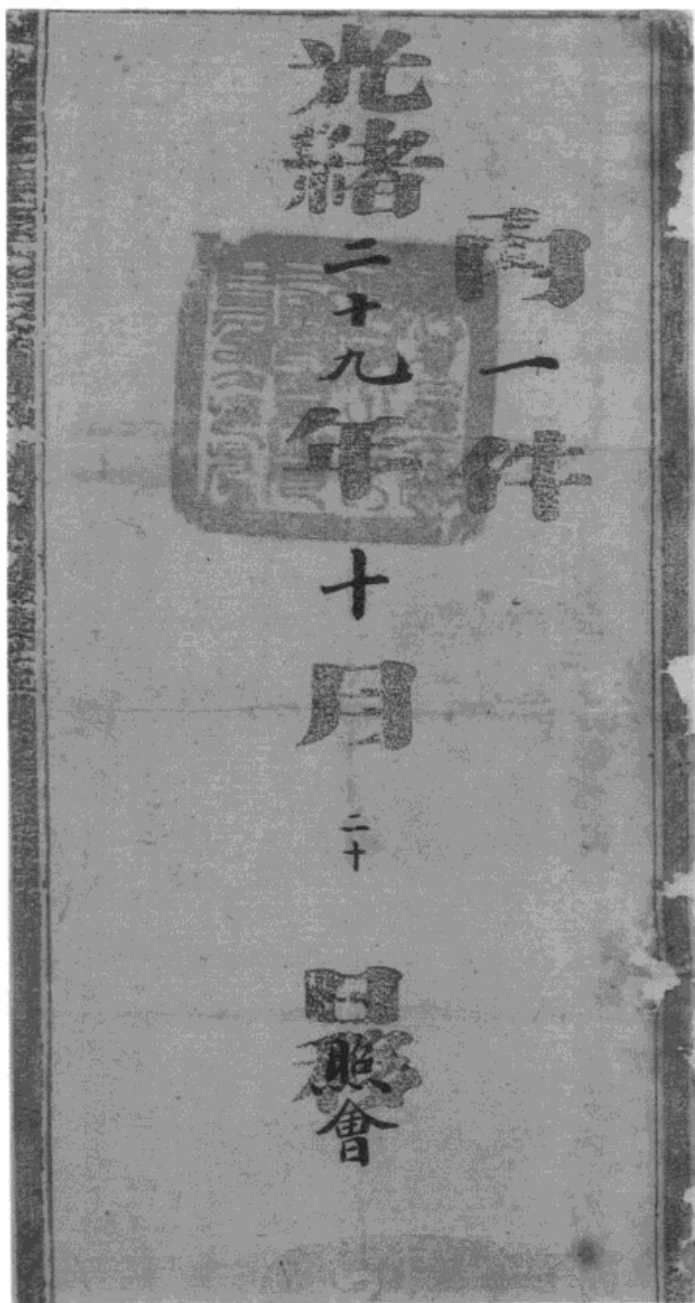 內一件
光緒二十九年十月二十日照會